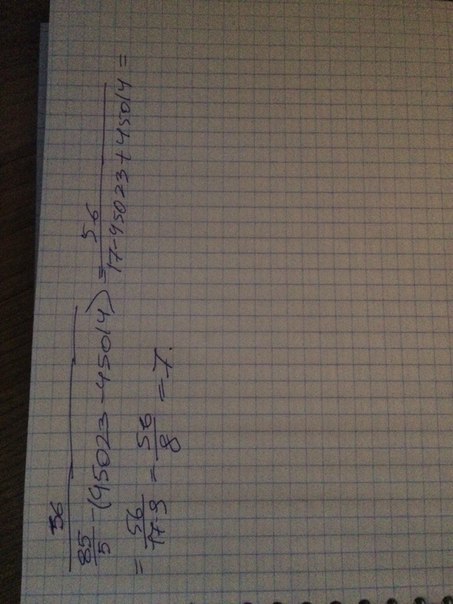 56
85/5 - (45023 - 45014) = 56/17-45023+45014 =
= 56/17-9 = 56/8 = 7.